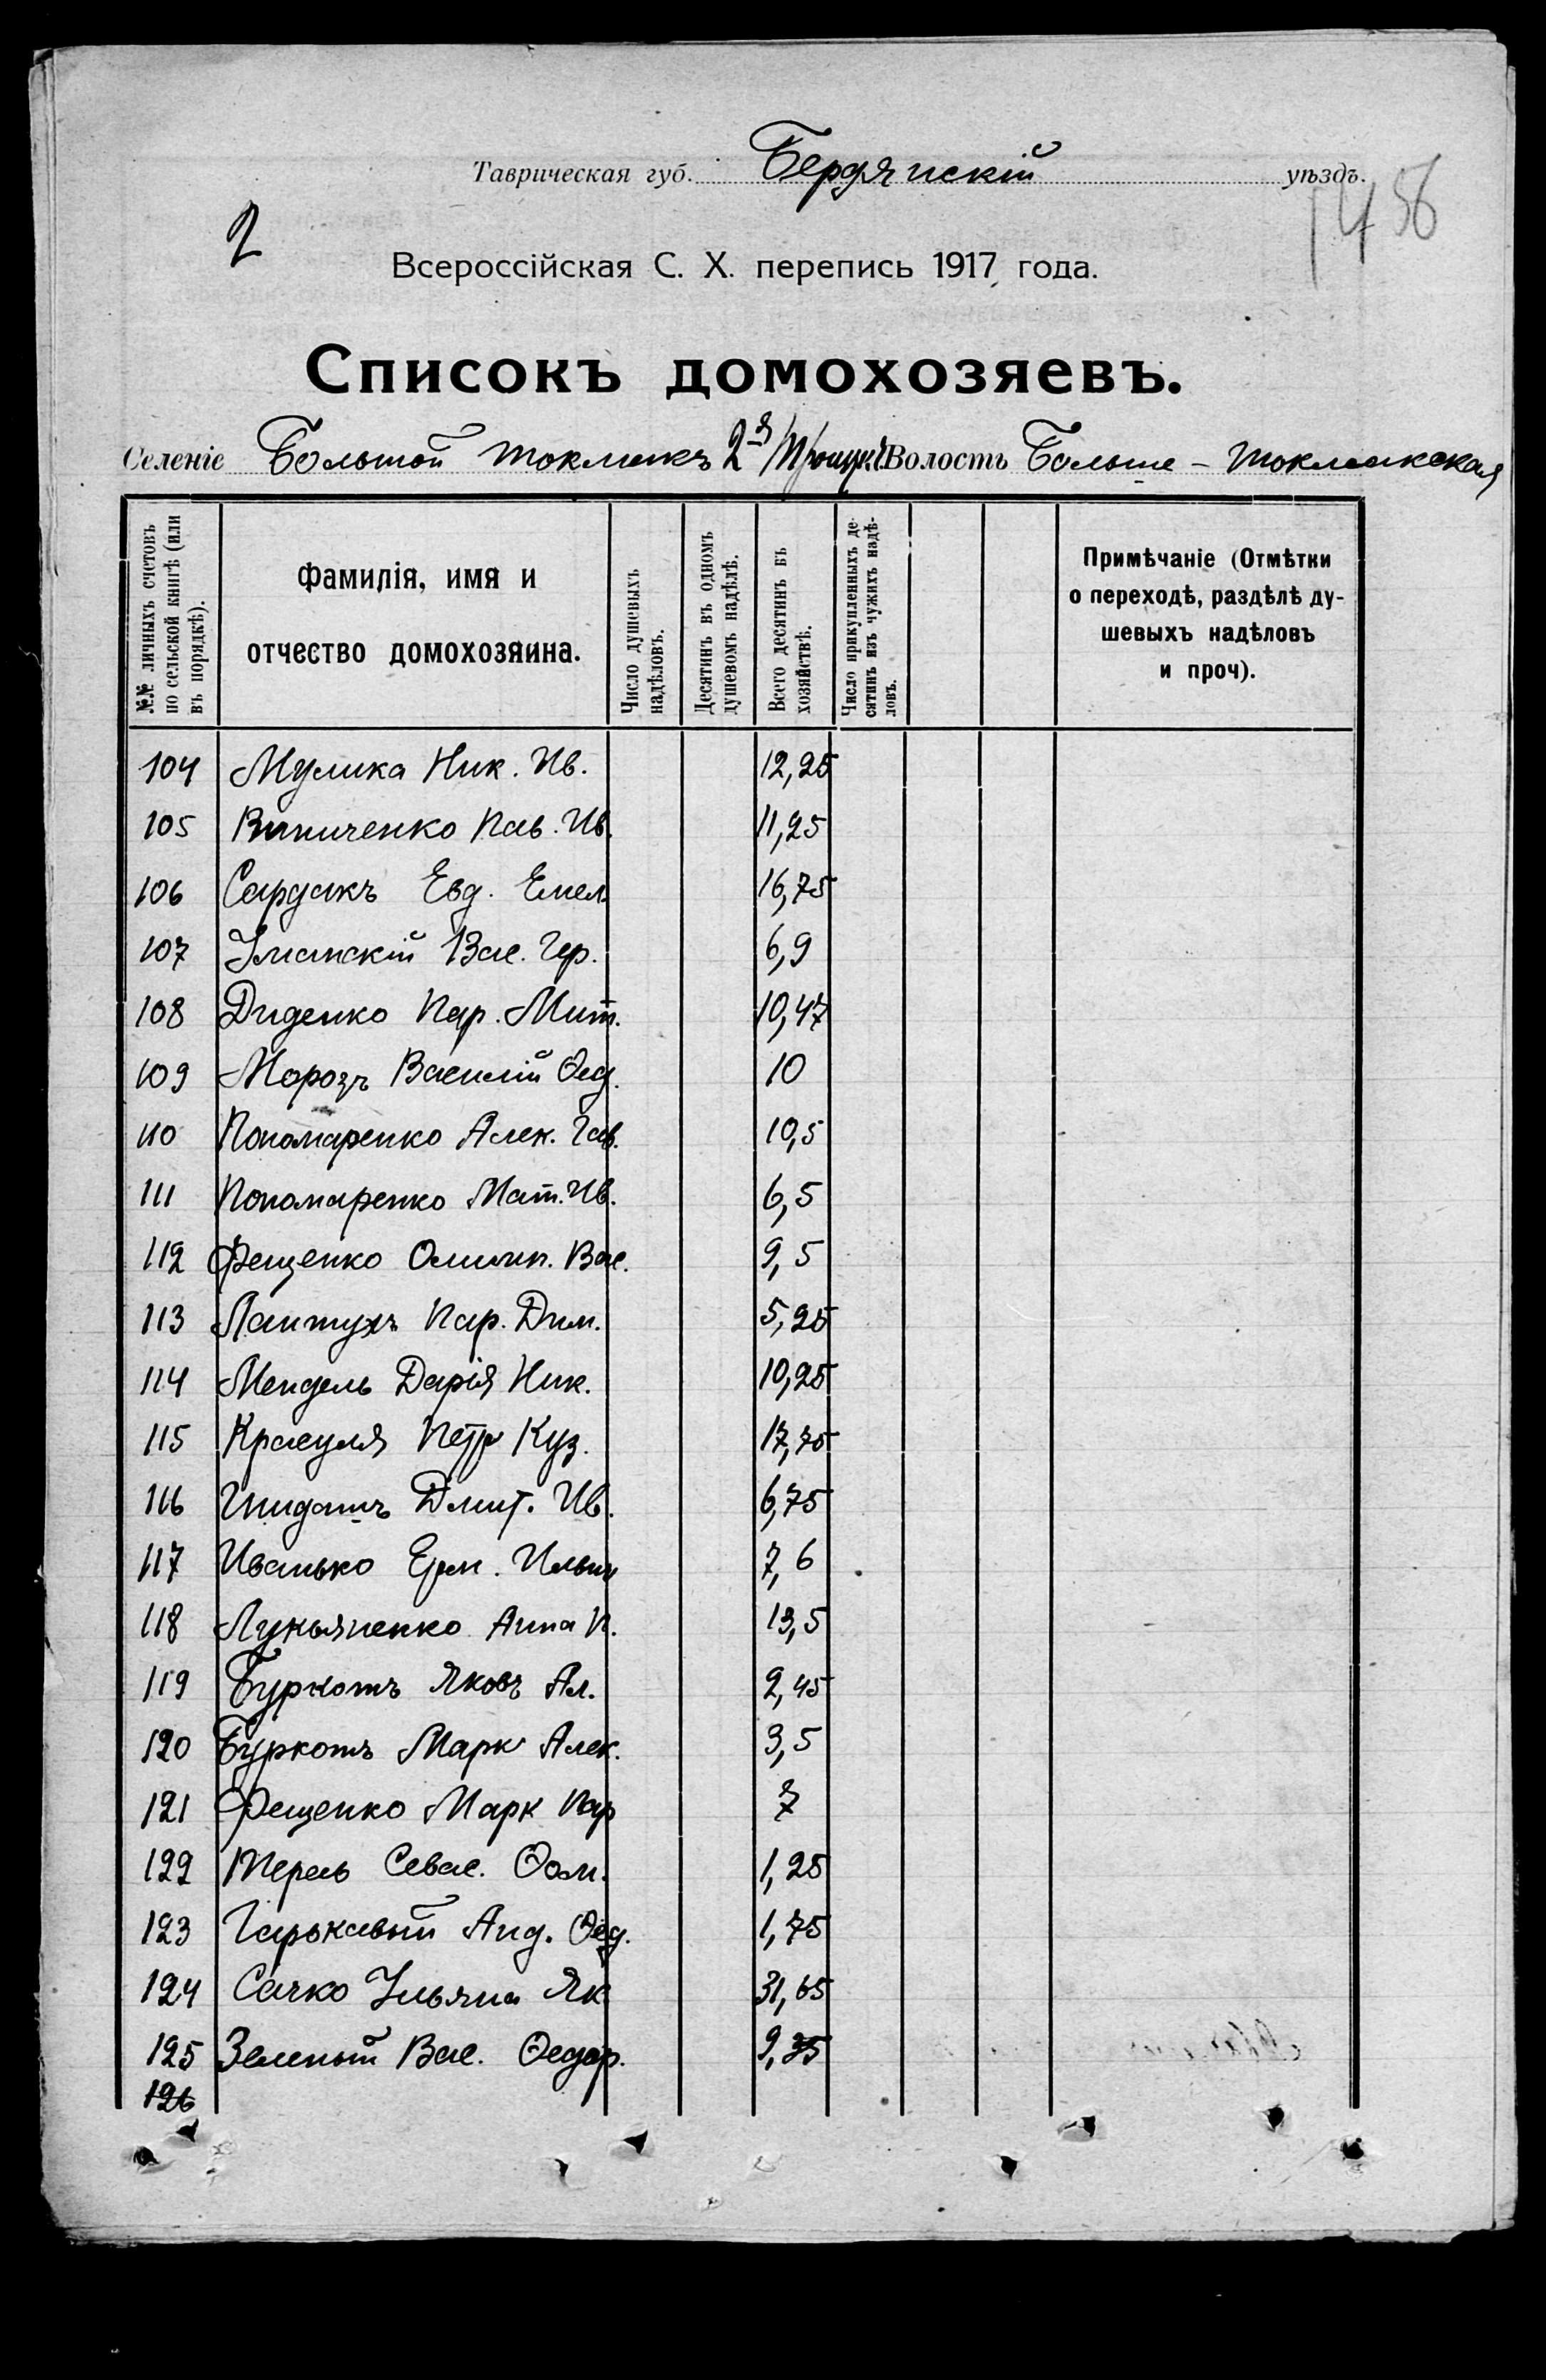 Таврическая губ. Бердянскій уѣздъ.
2
Всероссійская С. Х. перепись 1917 года.
Списокъ домохозяевъ.
Селеніе Большой Токмакъ 2я Волость Больше-Токмакская
№№ личныхъ счетовъ по сельской книгѣ (или въ порядкѣ).
Фамилія, имя и отчество домохозяина.
Число душевыхъ надѣловъ.
Десятинъ въ одномъ душевомъ надѣлѣ.
Всего десятинъ въ хозяйствѣ.
Число прикупленныхъ десятинъ изъ чужихъ надѣловъ.
Примѣчаніе (Отмѣтки о переходѣ, раздѣлѣ душевыхъ надѣловъ и проч).
104 Мулика Ник. Ив. 12,25
105 Винниченко Пав. Ив. 11,25
106 Сардакъ Евд. Емел. 16,75
107 Уманскій Вас. Гер. 6,9
108 Диденко Пар. Мит. 10,47
109 Морозъ Василій Ѳед. 10
110 Пономаренко Алек. Гав. 10,5
111 Пономаренко Мат. Ив. 6,5
112 Фещенко Олимп. Вас. 9,5
113 Лантухъ Пар. Дим. 5,25
114 Мендель Дарія Ник. 10,25
115 Красуля Петр Куз. 17,75
116 Дмит. Ив. 6,75
117 Иванько Ерм. Ильин 7,6
118 Лукьяненко Анна П. 13,5
119 Буркотъ Яковъ Ал. 2,45
120 Буркотъ Марк Алек. 3,5
121 Фещенко Марк Пар 7
122 Севас. Ѳом. 1,25
123 Гарькавый Анд. Ѳед. 1,75
124 Сачко Ульяна Як 31,65
125 Зеленый Вас. Ѳедор. 9,35
126